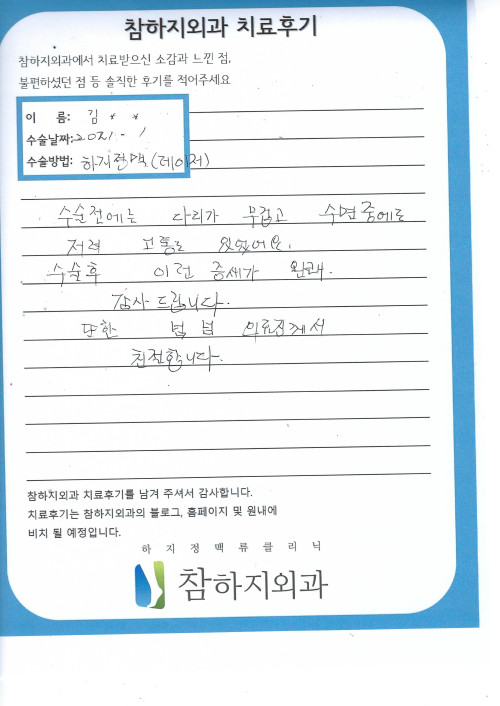 참하지외과 치료후기
참하지외과에서 치료받으신 소감과 느낀 점,
불편하셨던 점 등 솔직한 후기를 적어주세요
이 름: 김 * *
수술날짜: 2021 - 1
수술방법: 하지정맥(레이저)
수술전에는 다리가 무겁고 수면중에도
저려 고통도 있었어요.
수술후 이런 증세가 완쾌.
감사 드립니다.
또한 의료진께서
친절합니다.
참하지외과 치료후기를 남겨 주셔서 감사합니다.
치료후기는 참하지외과의 블로그, 홈페이지 및 원내에
비치 될 예정입니다.
하지정맥류클리닉
참하지외과